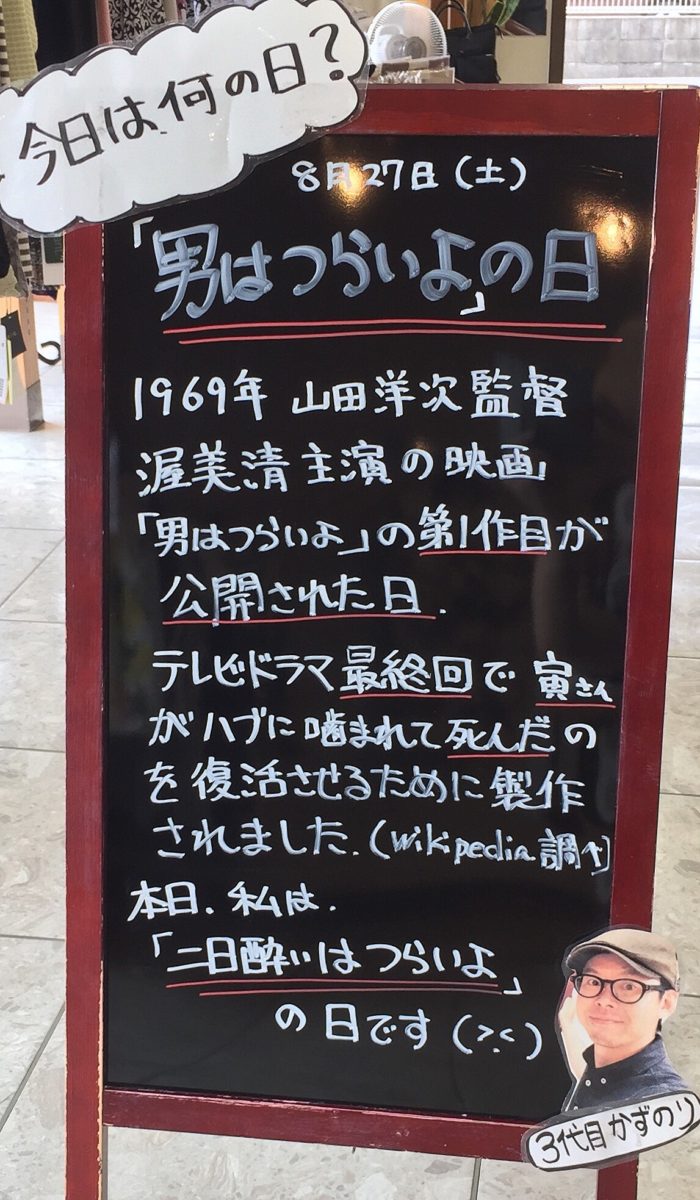 今日は何の日?
8月27日(土)
「男はつらいよ」の日
1969年 山田洋次監督
渥美清主演の映画
「男はつらいよ」の第1作目が
公開された日.
テレビドラマ最終回で寅さん
がハブに噛まれて死んだの
を復活させるために製作
されました.(Wikipedia調べ)
本日、私は、
「二日酔いはつらいよ」
の日です(>.<)
3代目かずのり